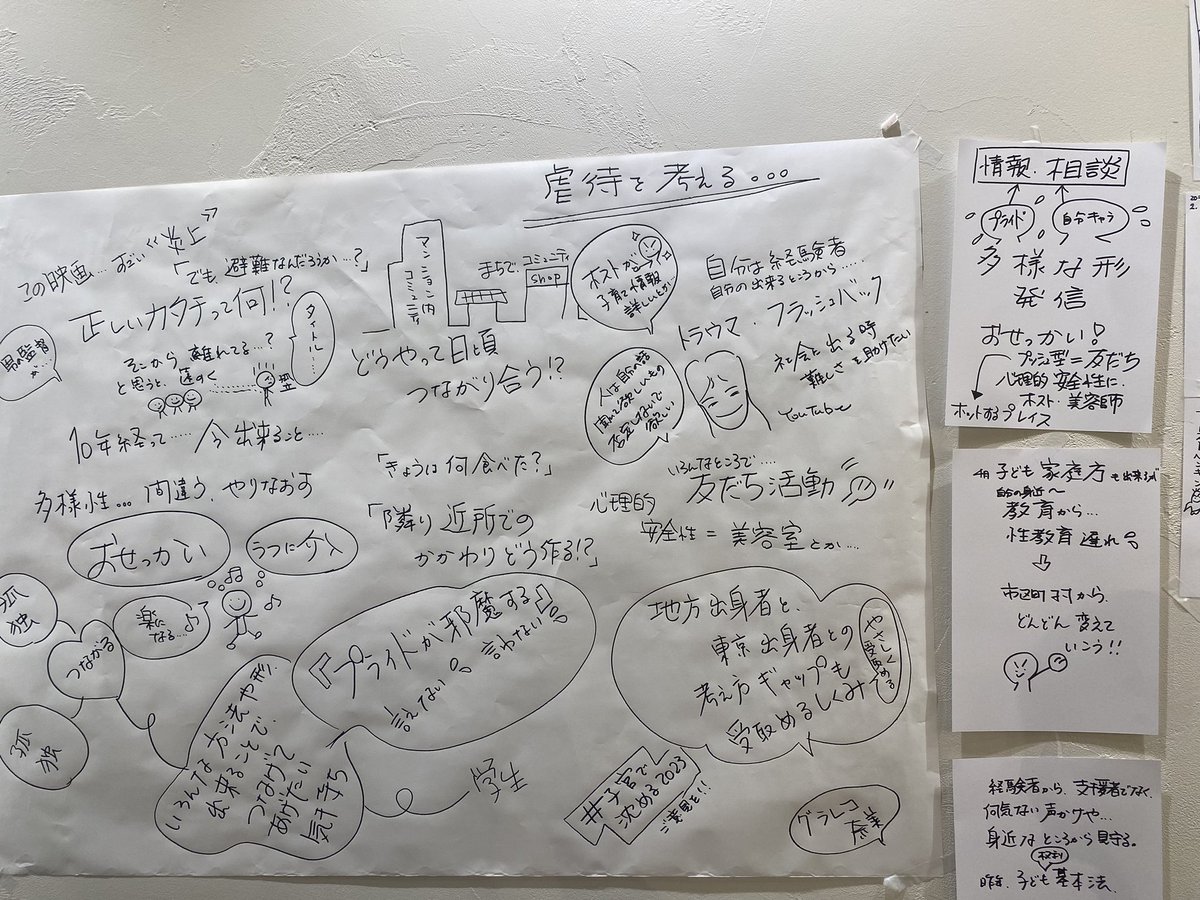 虐待を考える...
この映画... すごい "炎上"
「でも、避難なんだろうか...?」
正しいカタチって何!?
タイトル...
男の監督
が...
そこから 離れてる...?
と思うと、遠のく
10年経って...... 今出来ること....
多様性... 間違う、やりなおす
おせっかい
うつに介入
孤独
つながる
楽に
なる...♪
孤独
マンション内
コミュニティ
まちで、コミュニティ
shop
どうやって日頃
つながり合う!?
ホストが
子育て情報
詳しいとか!
自分は経験者
自分の出来るところから......
トラウマ・フラッシュバック
社会に出る時
難しさを助けたい
YouTube
人は自分の話
否定しないで
欲しい
「きょうは何食べた?」
「隣り近所での
かかわりどう作る!?」
いろんなところで....
友だち活動
心理的
安全性=美容室とか....
『プライドが邪魔する』
言えない 言わない
いろんな方法や形、
出来ることで、
つなげて
あげたい
気持ち
学生
地方出身者と、
東京出身者との
考え方ギャップも
受取めるしくみ
やさしく
受取める
#子宮で
沈める2023
ご意見を!!
グラレコ
奈美
情報・相談
プライド
自分キャラ
多様な形
発信
おせっかい!
プッシュ型=友だち
心理的安全性に、
ホスト・美容師
ホットするプレイス
子ども家庭庁
も出来るが
自分の身近へ
教育から...
性教育遅れ
市区町村から、
どんどん変えて
いこう!!
経験者から、支援者でなく、
何気ない声かけや...
身近なところから見守る。
権利
昨年、子ども基本法、